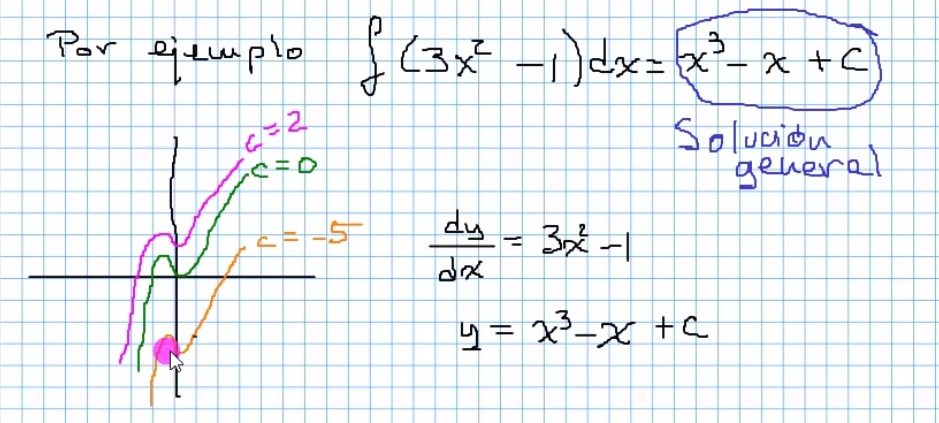 Por ejemplo ∫(3x² - 1)dx = x³ - x + C
Solución
general
c = 2
c = 0
c = -5
dy/dx = 3x² - 1
y = x³ - x + C